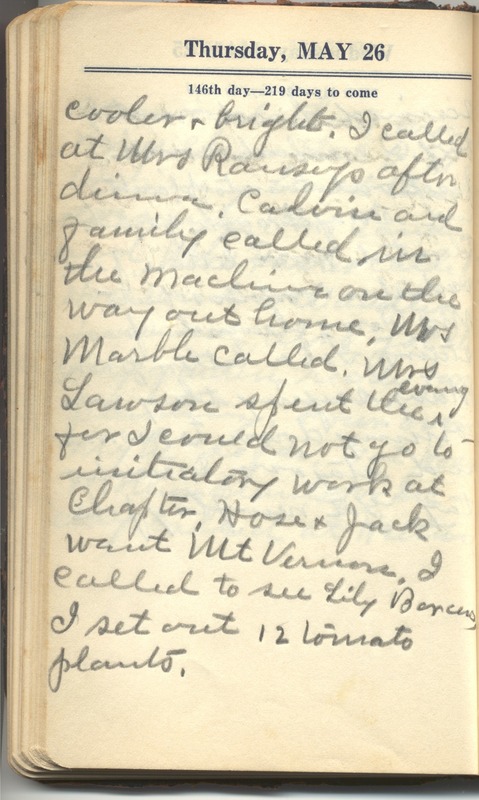 Thursday, MAY 26
146th day—219 days to come
cooler & bright. I called
at Mrs Ramseys after
dinner. Calvin and
family called in
the machine on the
way out home. Mrs
Marble called. Mrs
Lawson spent the evening
for I could not go to
initiatory work at
Chapter. Hose & Jack
want Mt Vernon. I
called to see Lily
I set out 12 tomato
plants.